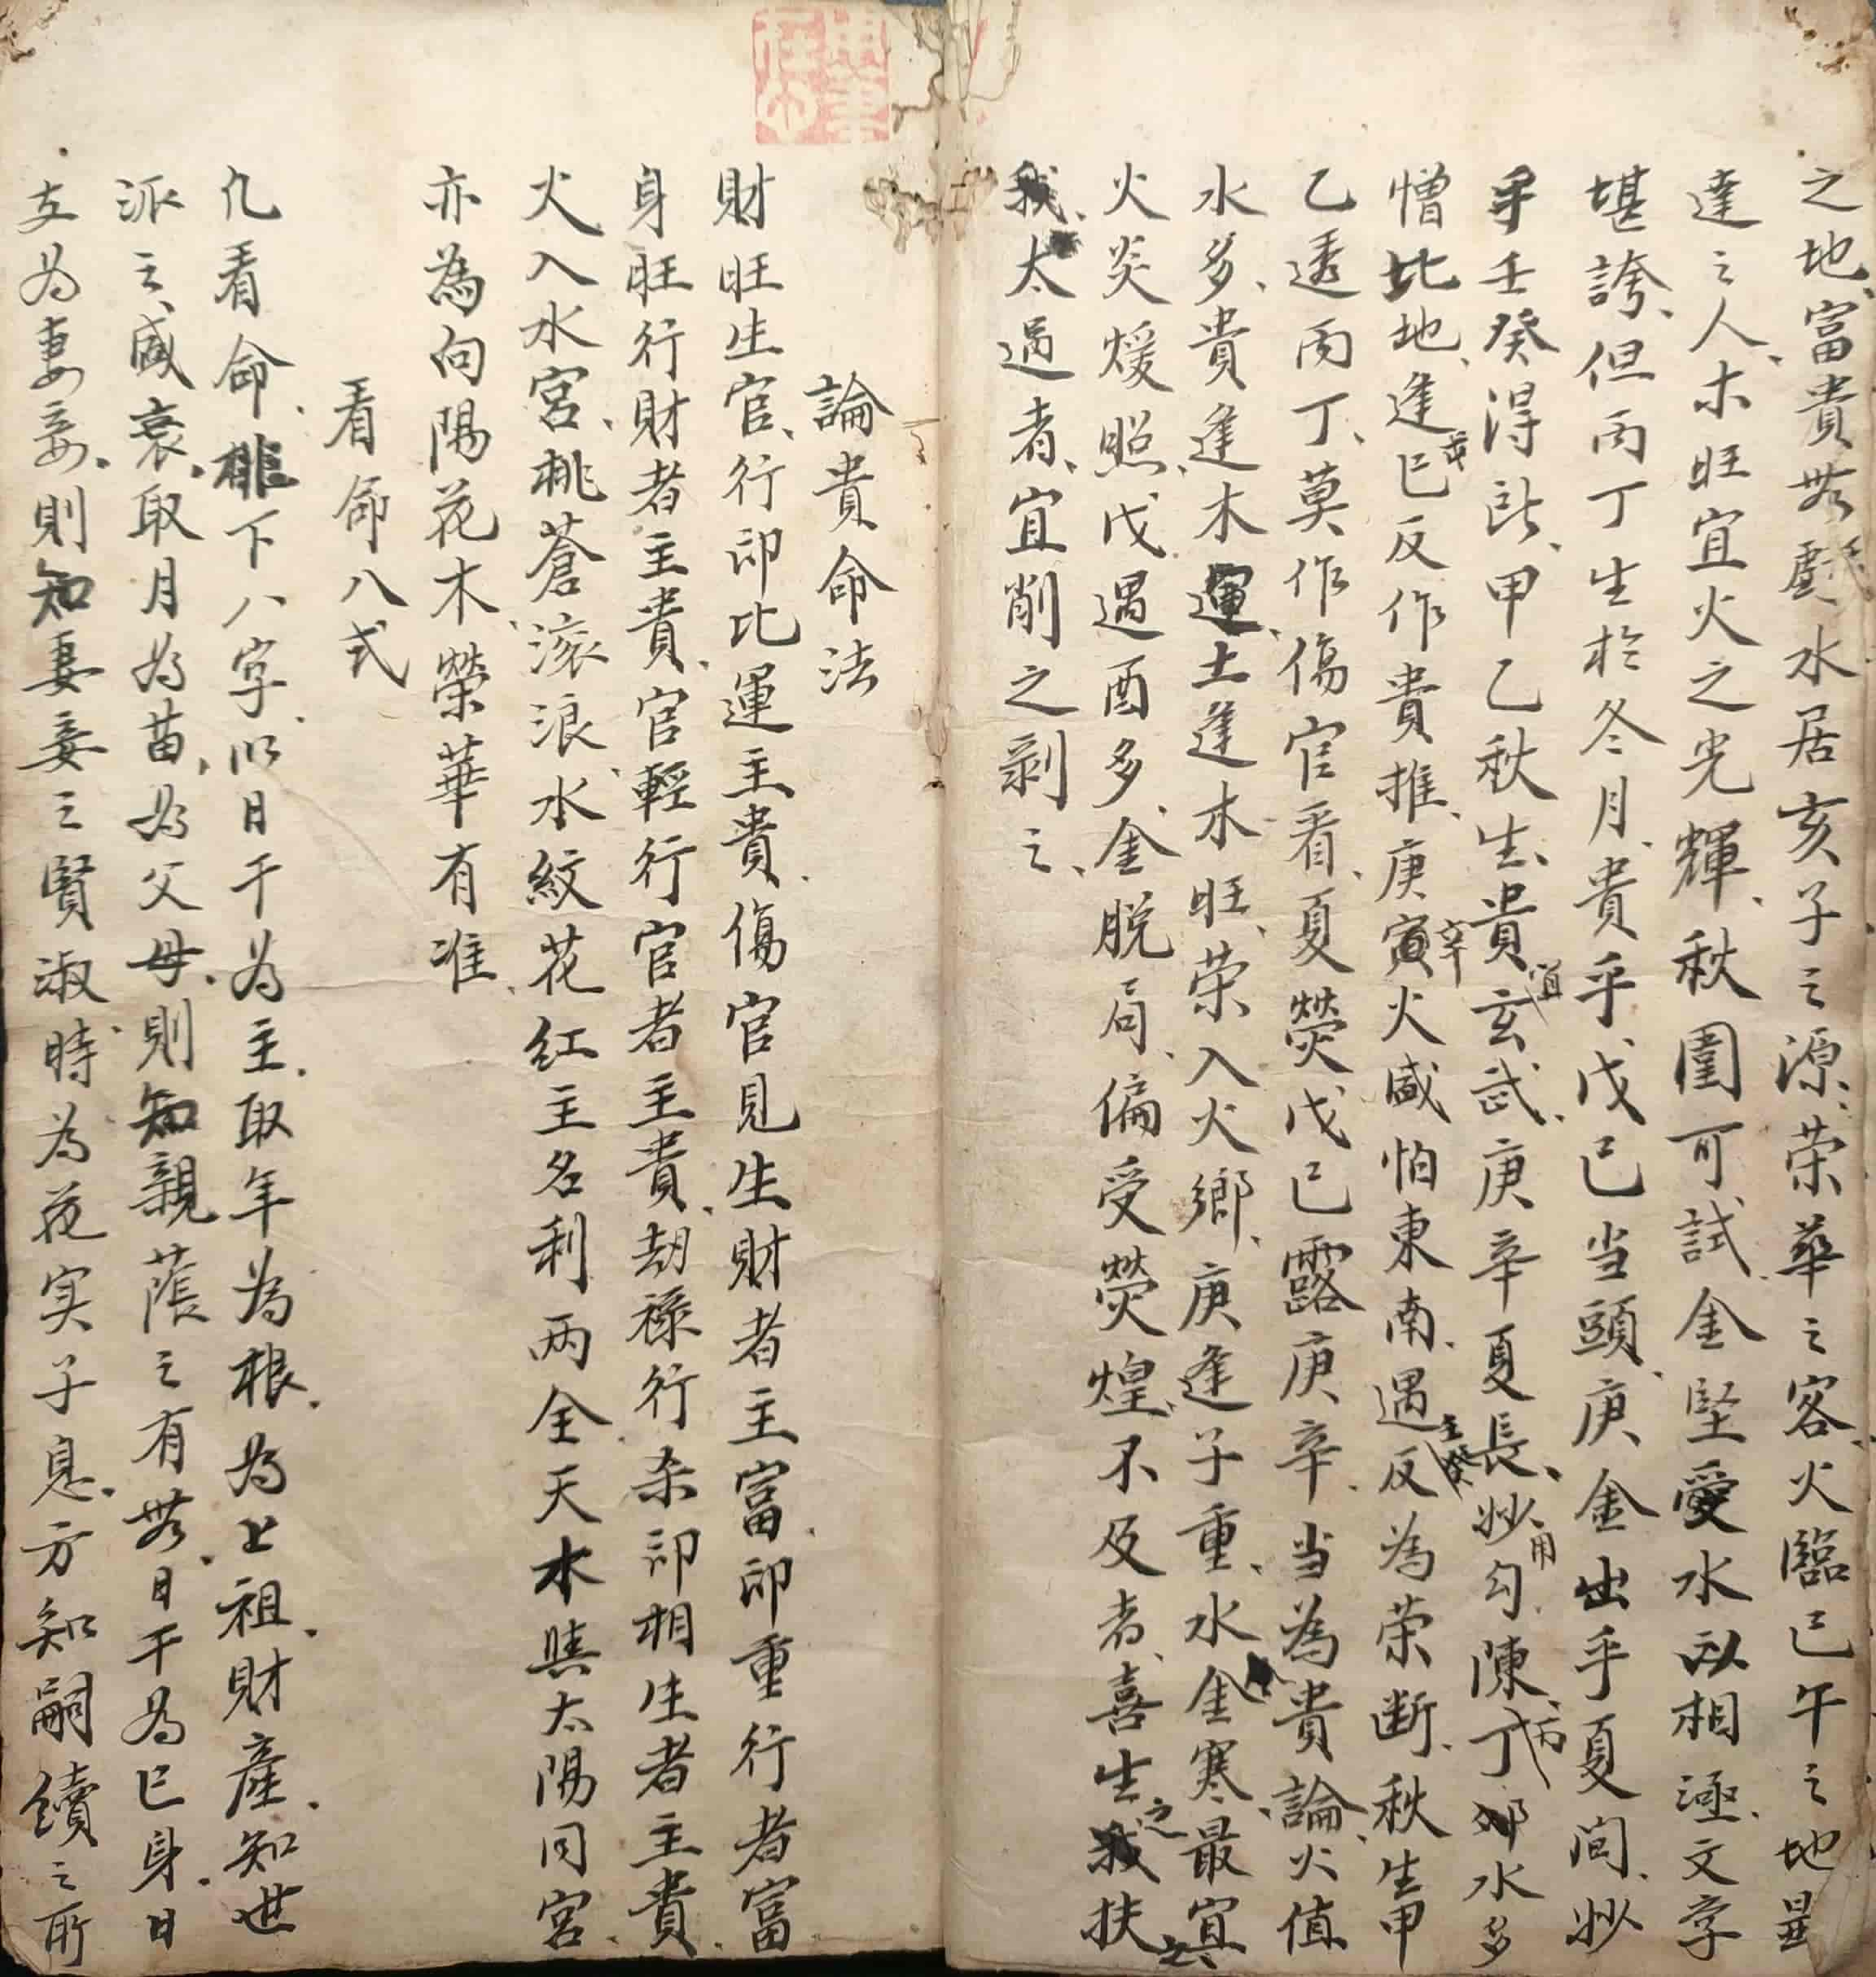 之地富貴無戲水居亥子之源荣華之客火臨巳午之地显
達之人木旺宜火之光輝秋闈可試金堅愛水以相逐文字
堪誇但丙丁生於冬月貴乎戊己当頭庚金出乎夏间妙
乎壬癸得所甲乙秋生貴宜玄武庚辛夏長妙用勾陳丁丙卯水多
憎比地逢巳亥反作貴推庚寅辛火咸怕東南遇壬癸反為荣断秋生甲
乙透丙丁莫作傷官看夏熒戊己露庚辛当為貴論火值
水多貴逢木運土逢木旺荣入火鄉庚逢子重水金寒最宜
火炎煖照戊遇酉多金脱局偏受熒煌不及者喜生之我扶之
我太過者宜削之剥之
論貴命法
財旺生官行印比運主貴傷官見生財者主富印重行者富
身旺行財者主貴官輕行官者主貴劫祿行杀印相生者主貴
火入水宮桃蒼滚浪水紋花红主名利两全天木與太陽同宮
亦為向陽花木榮華有准
看命八式
凢看命排下八字以日干为主取年為根为上祖財產知世
派之咸衰取月为苗为父母則知親蔭之有無日干为己身日
支为妻妾則知妻妾之賢淑時為花实子息方知嗣續之所